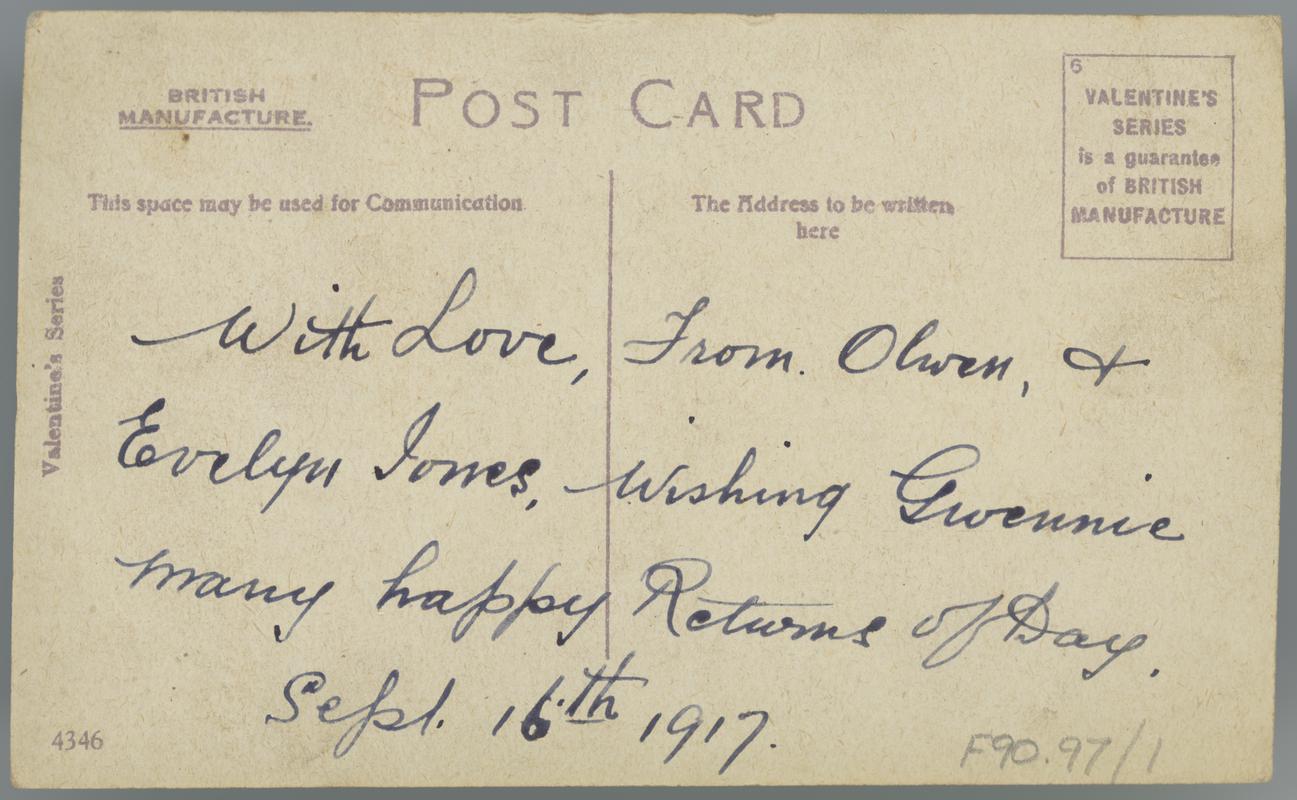 BRITISH
MANUFACTURE.
POST CARD
6
VALENTINE'S
SERIES
is a guarantee
of BRITISH
MANUFACTURE
This space may be used for Communication
The Address to be written
here
Valentine's Series
With Love, From. Olwen, &
Evelyn Jones, Wishing Gwennie
many happy Returns of Day.
Sept. 16th 1917.
4346
F90.97/1